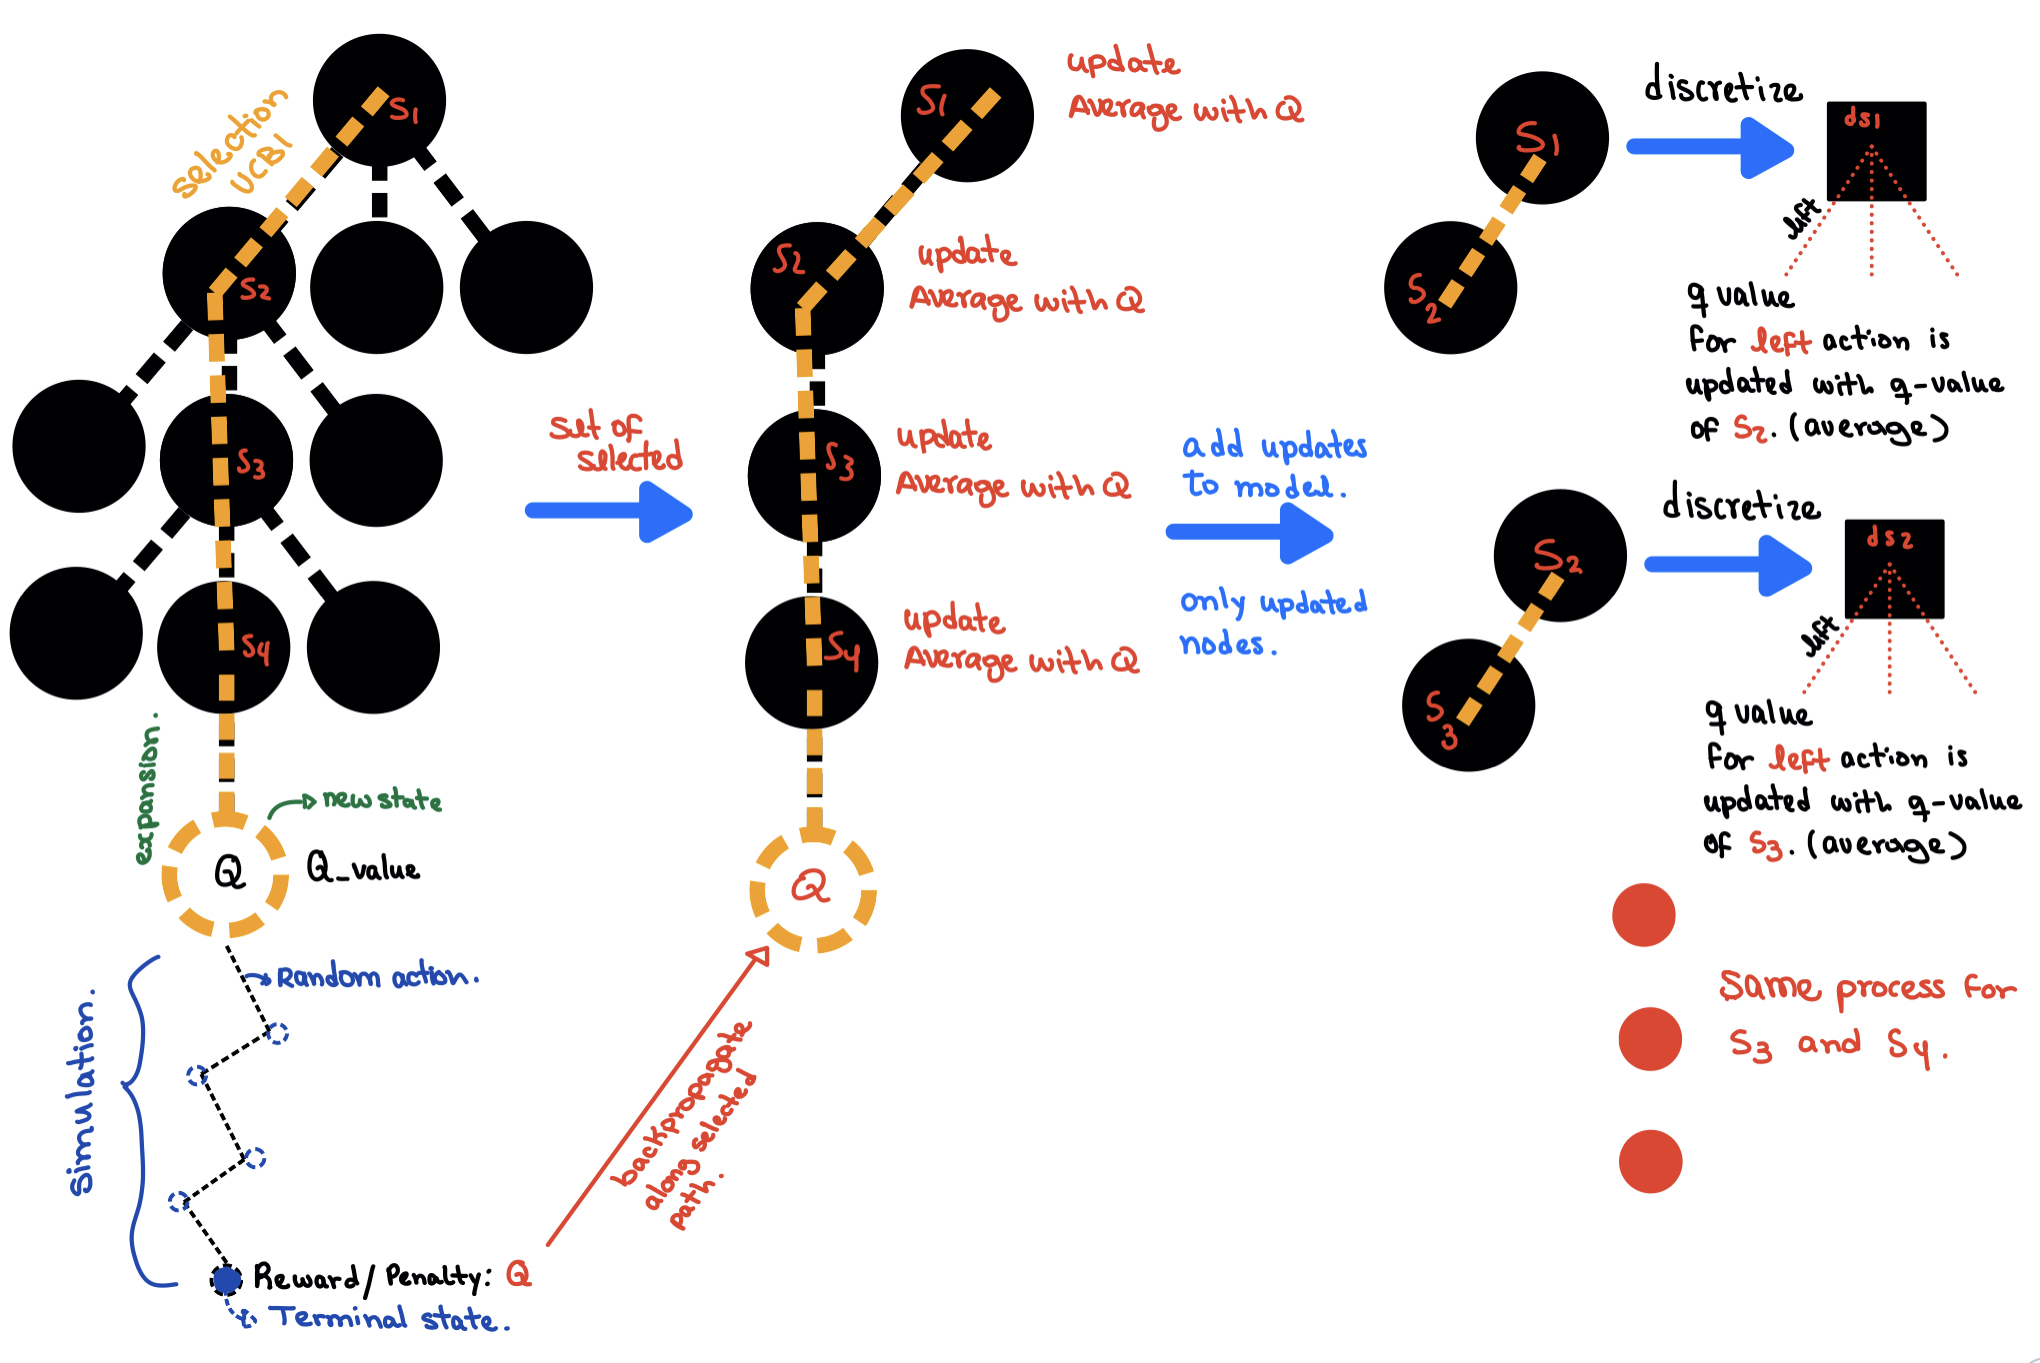 selection
UCB1
S1
S2
S3
S4
expansion.
new state
Q
Q_value
simulation.
Random action.
Reward/Penalty: Q
Terminal state.
set of
selected
backpropagate
along selected
path.
S1
update
Average with Q
S2
update
Average with Q
S3
update
Average with Q
S4
update
Average with Q
Q
add updates
to model.
only updated
nodes.
S1
S2
discretize
ds1
left
q value
for left action is
updated with q-value
of S2. (average)
S2
S3
discretize
ds2
left
q value
for left action is
updated with q-value
of S3. (average)
Same process for
S3 and S4.